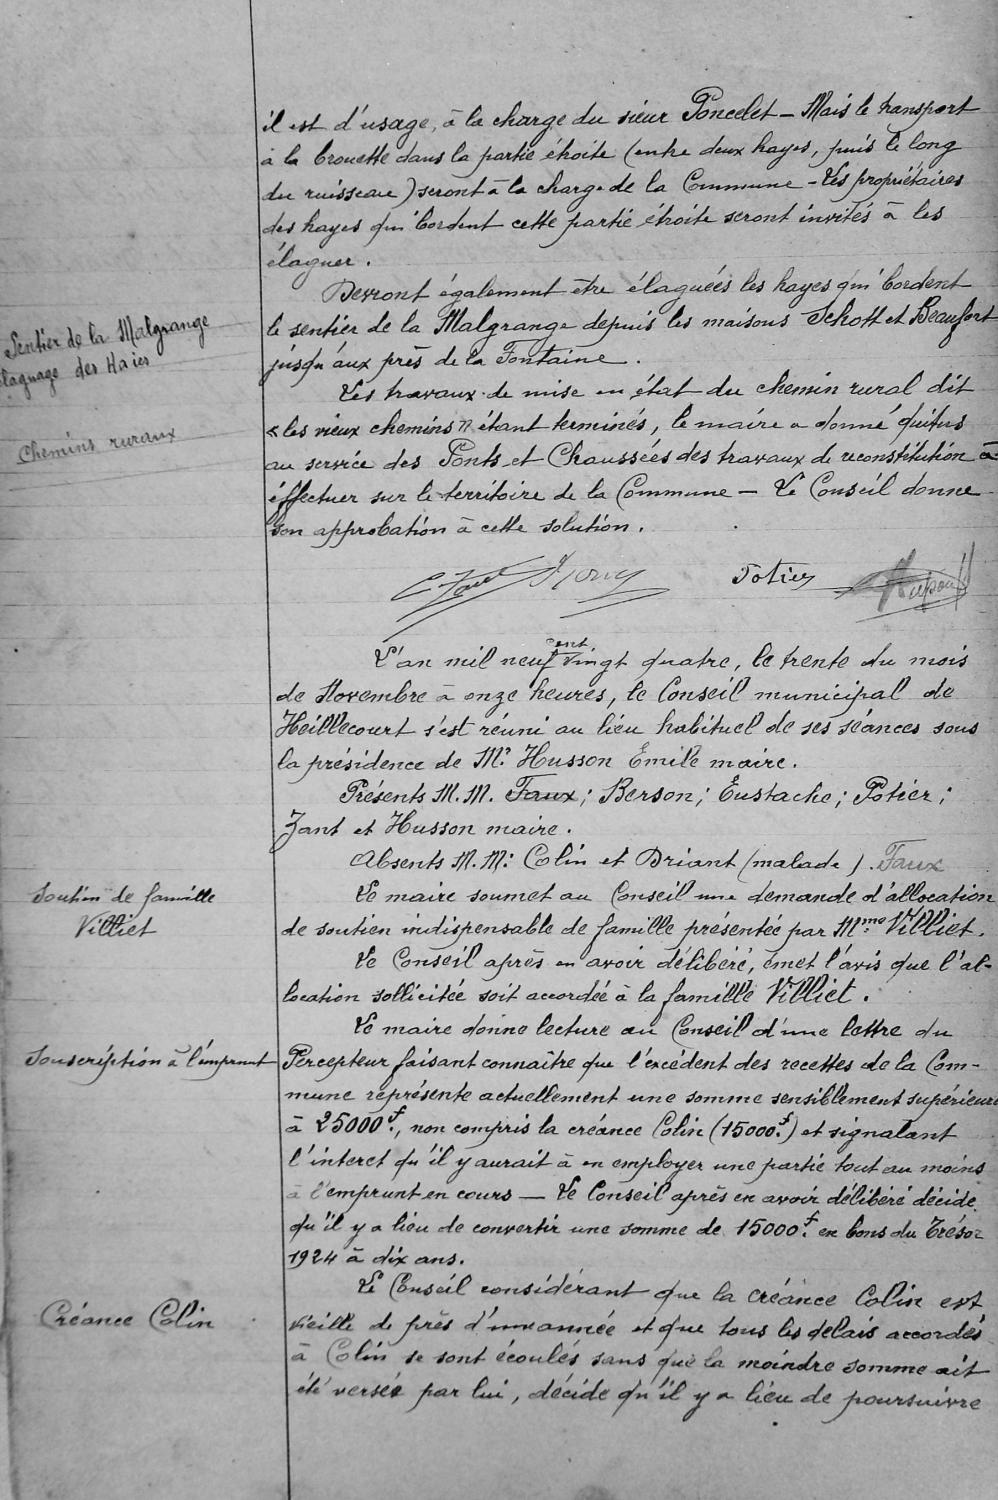 il est d'usage, à la charge du sieur Poncelet — Mais le transport
à la brouette dans la partie étroite (entre deux hayes, puis le long
du ruisseau) seront à la charge de la Commune - Les propriétaires
des hayes qui bordent cette partie étroite seront invités à les
élaguer.
Devront également être élaguées les hayes qui bordent
Sentier de la Malgrange
le sentier de la Malgrange depuis les maisons Schott et Beaufort
élaguage des Haies
jusqu'aux près de la Fontaine.
Les travaux de mise en état du chemin rural dit
« les vieux chemins » étant terminés, le maire a donné quitus
Chemins ruraux
au service des Ponts et Chaussées des travaux de reconstitution à
éffectuer sur le territoire de la Commune — Le Conseil donne
son approbation à cette solution.
Potier
L'an mil neuf cent vingt quatre, le trente du mois
de Novembre à onze heures, le Conseil municipal de
Heillecourt s'est réuni au lieu habituel de ses séances sous
la présidence de Mr Husson Emile maire.
Présents M.M. Faux; Berson; Eustache; Potier;
Zant et Husson maire.
Absents M.M: Colin et Briant (malade). Faux
Soutien de famille
Le maire soumet au Conseil une demande d'allocation
Villiet
de soutien indispensable de famille présentée par Mme Villiet.
Le Conseil après en avoir délibéré, émet l'avis que l'al-
location sollicitée soit accordée à la famille Villiet.
Le maire donne lecture au Conseil d'une lettre du
Souscription à l'emprunt
Percepteur faisant connaître que l'excédent des recettes de la Com-
mune représente actuellement une somme sensiblement supérieure
à 25000f, non compris la créance Colin (15000f) et signalant
l'interet qu'il y aurait à en employer une partie tout au moins
à l'emprunt en cours — Le Conseil après en avoir délibéré décide
qu'il y a lieu de convertir une somme de 15000f en bons du Trésor
1924 à dix ans.
Le Conseil considérant que la créance Colin est
Créance Colin
vieille de près d'une année et que tous les delais accordés
à Colin se sont écoulés sans que la moindre somme ait
été versée par lui, décide qu'il y a lieu de poursuivre